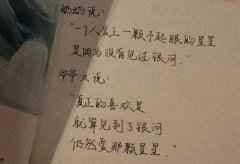 奶奶说：
“一个人爱上一颗不起眼的星星
是因为没有见过银河.
爷爷又说：
“真正的喜欢是
就算见到了银河
仍然爱那颗星星.”